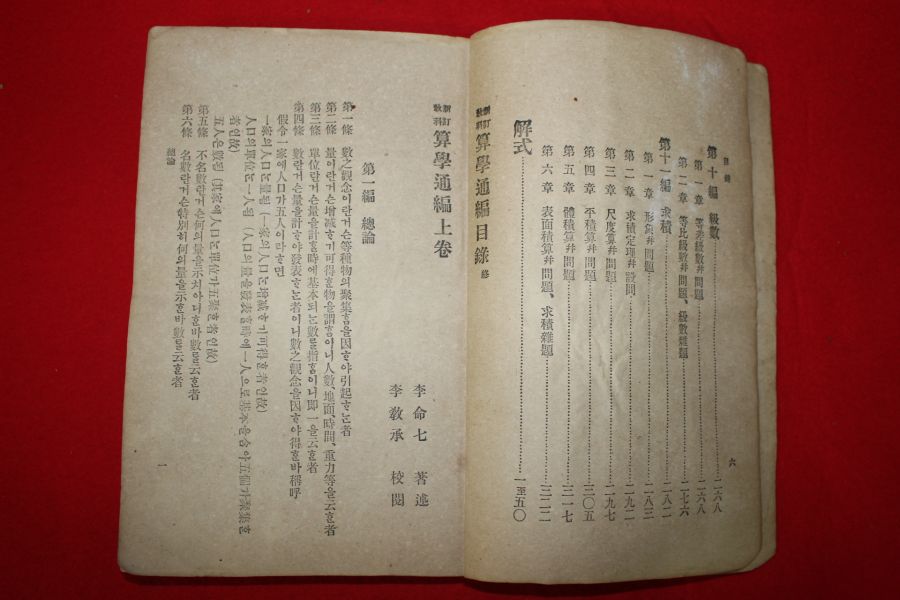 目錄
第十編 級數……二六八
第一章 等差級數幷問題……二六八
第二章 等比級數幷問題、級數雜題……二七六
第十一編 求積……二八二
第一章 形象幷問題……二八三
第二章 求積定理幷設問……二九二
第三章 尺度算幷問題……二九七
第四章 平積算幷問題……三〇五
第五章 體積算幷問題……三一七
第六章 表面積算幷問題、求積雜題……三二二
解式……一至五〇
新訂敎科 算學通編目錄 終
六
新訂敎科 算學通編上卷
李命七 著述
李敎承 校閱
第一編 總論
第一條 數之觀念이란거슨等種物의聚集홈을因ᄒᆞ야引起ᄒᆞᄂᆞᆫ者
第二條 量이란거슨增減ᄒᆞ기可得ᄒᆞᆯ物을謂홈이니人數、地面、時間、重力等을云ᄒᆞᆫ者
第三條 單位란거슨量을計ᄒᆞᆯ時에基本되ᄂᆞᆫ數를指홈이니卽一을云ᄒᆞᆫ者
第四條 數란거슨量을計ᄒᆞ야發表ᄒᆞᄂᆞᆫ者이니數之觀念을因ᄒᆞ야得ᄒᆞᆫ바稱呼
假令一家에人口가五人이라ᄒᆞ면
一家의人口ᄂᆞᆫ量됨(一家의人口ᄂᆞᆫ增減ᄒᆞ기可得ᄒᆞᆫ者인故)
人口의單位ᄂᆞᆫ一人됨(人口의量을發表ᄒᆞᆯ時에一人으로基本을合야五個가聚集ᄒᆞᆫ
者인故)
五人은數됨(其家에人口ᄂᆞᆫ單位가五聚ᄒᆞᆫ者인故)
第五條 不名數란거슨何의量을示치아니ᄒᆞᆫ바數를云ᄒᆞᆫ者
第六條 名數란거슨特別히何의量을示ᄒᆞᆫ바數를云ᄒᆞᆫ者
總論
一